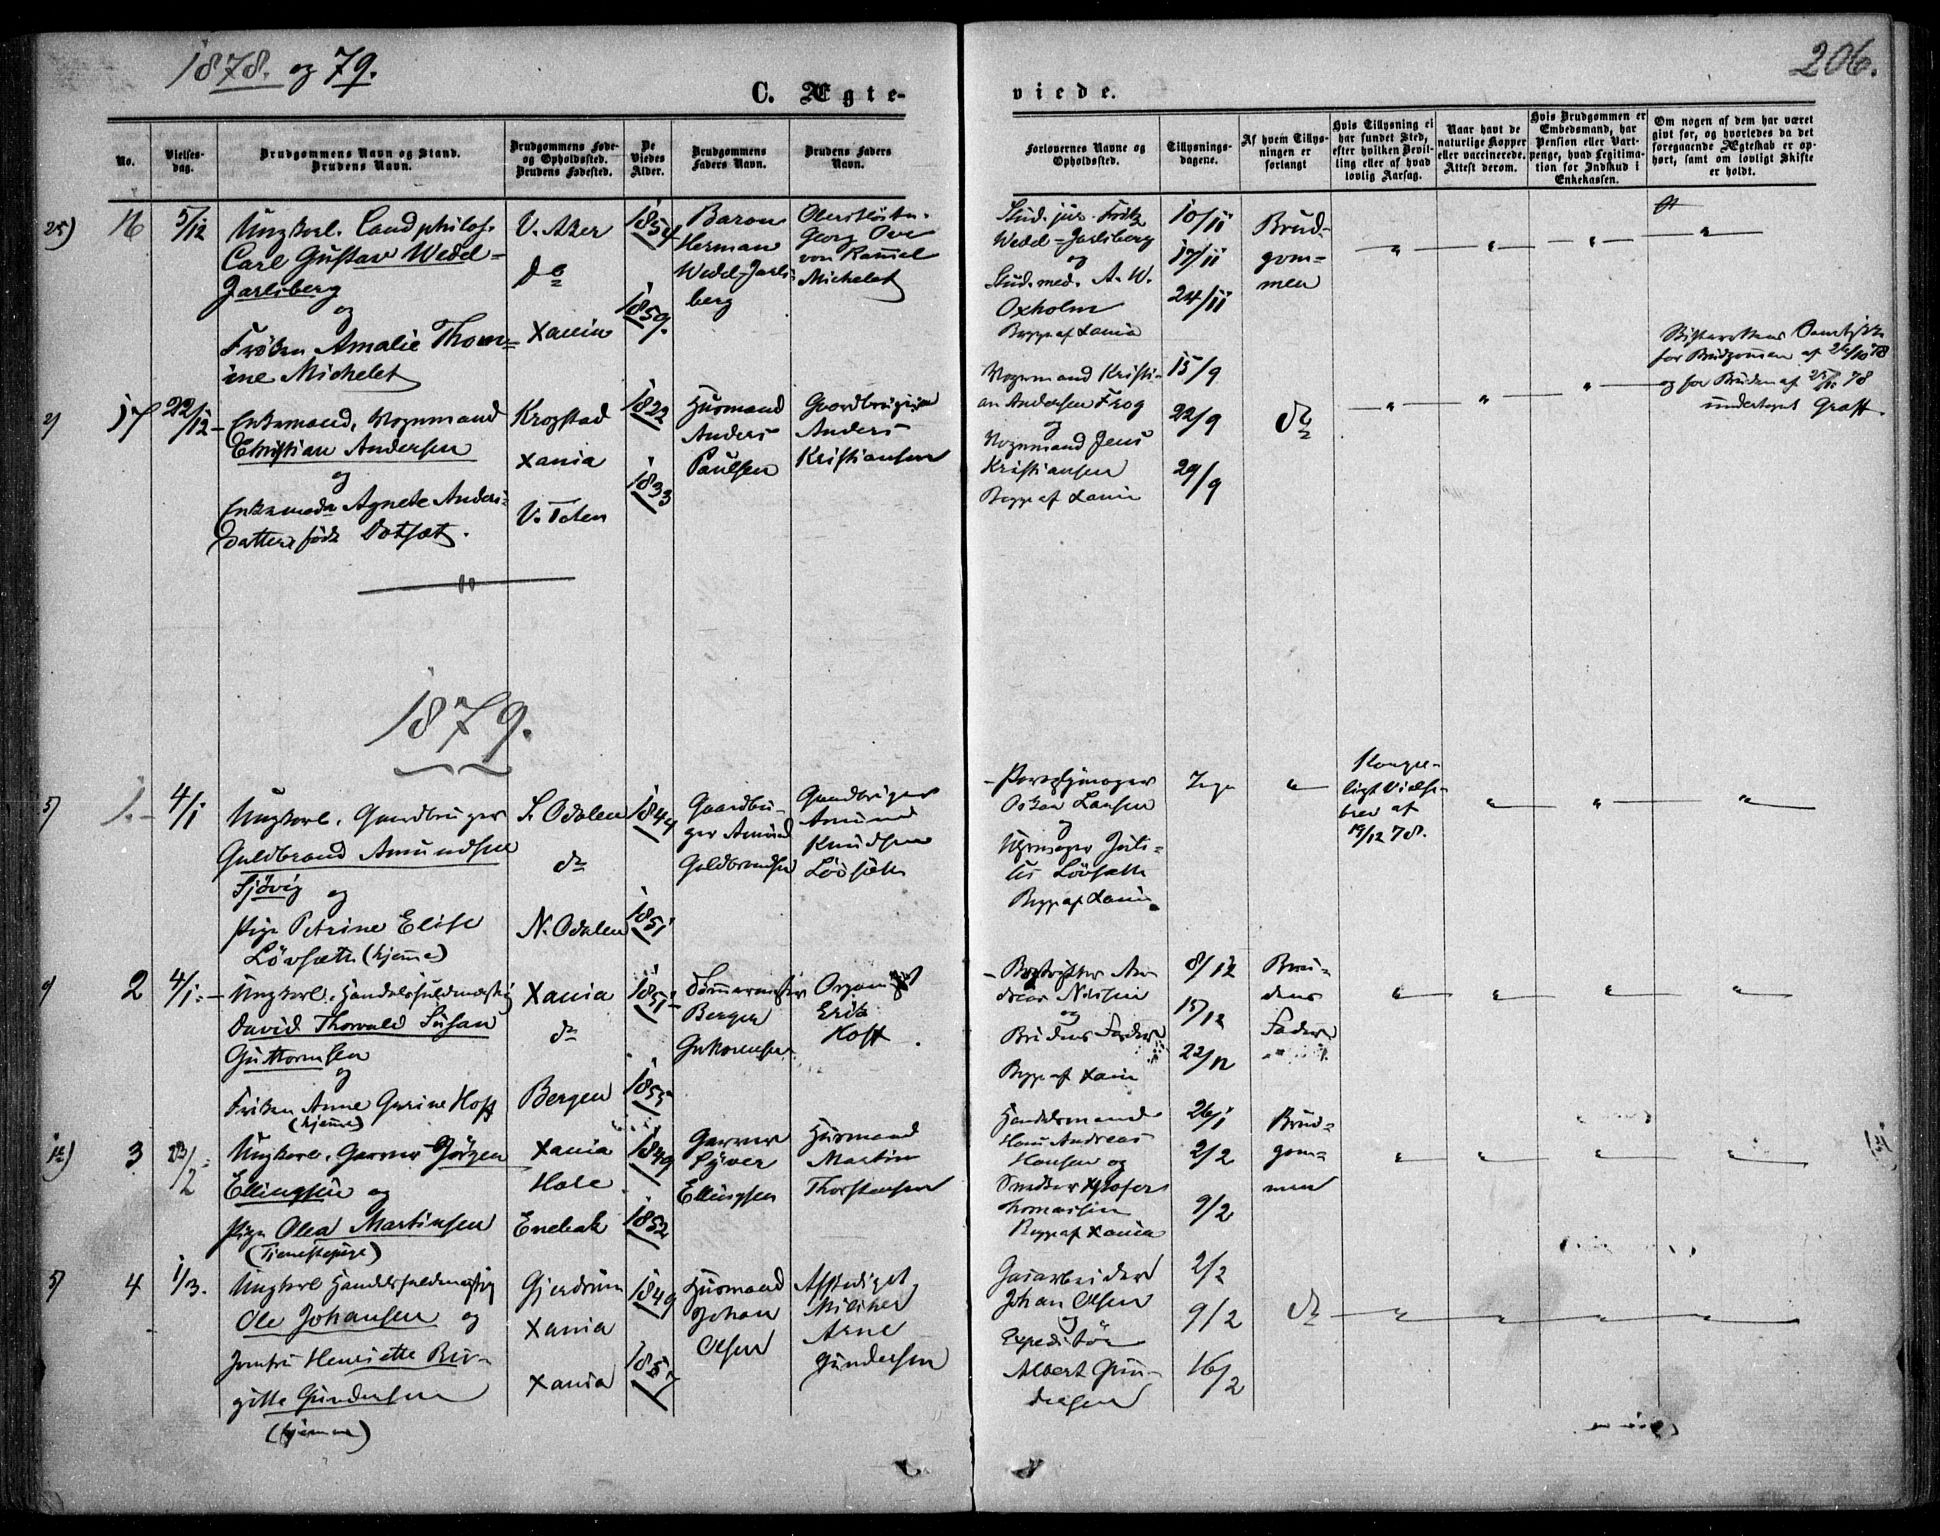 1878. og 79.
206.
C. Ægte-
viede.
No.
Vielses-
dag.
Brudgommens Navn og Stand.
Brudens Navn.
Brudgommens Føde-
og Opholdssted.
Brudens Fødested.
De
Viedes
Alder.
Brudgommens
Faders Navn.
Brudens Faders
Navn.
Forlovernes Navne og
Opholdssted.
Tillysnings-
dagene.
Af hvem Tillys-
ningen er
forlangt
Hvis Tillysning ei
har fundet Sted,
efter hvilken Bevil-
ling eller af hvad
lovlig Aarsag.
Naar havt de
naturlige Kopper
eller vaccinerede.
Attest derom.
Hvis Brudgommen er
Embedsmand, har
Pension eller Vart-
penge, hvad Legitima-
tion for Indskud i
Enkekassen.
Om nogen af dem har været
gift før, og hvorledes da det
foregaaende Ægteskab er op-
hørt, samt om lovligt Skifte
er holdt.
25) 16 5/12
Ungkarl. Cand philos.
Carl Gustav Wedel-
Jarlsberg
og
Frøken Amalie Thom-
ine Michelet
V. Aker
do
Xania
1854
1859.
Baron
Herman
Wedel-Jarls-
berg
Oberstløitn.
Georg Ove
von Ramel
Michelet
Stud. jur. Fritz
Wedel-Jarlsberg
og
Stud. med. A. W.
Oxholm
Begge af Xania
10/11
17/11
24/11
Brud-
gom-
men
2) 17 22/12
Enkemand, Vognmand
Christian Andersen
og
Enkemadm Agnete Anders-
datter født Dotset.
Krogstad
Xania
V. Toten
1822
1833
Husmand
Anders
Paulsen
Gaardbruger
Anders
Kristiansen
Vognmand Kristi-
an Andersen Frog
og
Vognmand Jens
Kristiansen
Begge af Xania
15/9
22/9
29/9
do
for Brudgommen af 26/10 78
og for Bruden af 78
undertegnet Graff.
1879.
5) 1. 4/1
Ungkarl. Gaardbruger
Guldbrand Amundsen
Sjøvig og
Pige Petrine Elise
Lövsæth (hjemme)
S. Odalen
do
N. Odalen
1844
1851
Gaardbru-
ger Amund
Guldbrandsen
Gaardbruger
Amund
Knudsen
Lövsæth
Oskar Larsen
og
Juli-
us Lövsæth
Begge af Xania.
Inge
Konge-
ligt Vielse-
brev af
19/12 78.
2 4/1
Ungkarl. Handelsfuldmægtig
David Thorvald Susan
Guttormsen
og
Frøken Anne Gurine Hoff
(hjemme)
Xania
do
Bergen
1851
1855
Tømmermester
Berger
Guttormsen
Organist
Erik
Hoff
Bogtrykker An-
dreas Nilssen
og
Brudens Fader
Begge af Xania
8/12
15/12
22/12
Bru-
dens
Fader
12) 3
Ungkarl. Garver Jørgen
Ellingsen og
Pige Olea Martinsen
(Tjenestepige)
Xania
Hole
Enebak
1849
1852
Garver
Syver
Ellingsen
Husmand
Martin
Thorstensen
Handelsmand
Hans Andreas
Hansen og
Thomassen
Begge af Xania
26/1
2/2
9/2
Brud-
gom-
men
5) 4 1/3.
Ungkarl Handelsfuldmægtig
Ole Johansen og
Jomfru Henriette Bir-
gitte Gundersen
(hjemme)
Gjerdrum
Xania
Xania
1849
1857
Husmand
Johan
Olsen
Afskediget
Militær
Arne
Gundersen
Gasarbeider
Johan Olsen
og
Expeditør
Albert Gun-
dersen
2/2
9/2
16/2
do